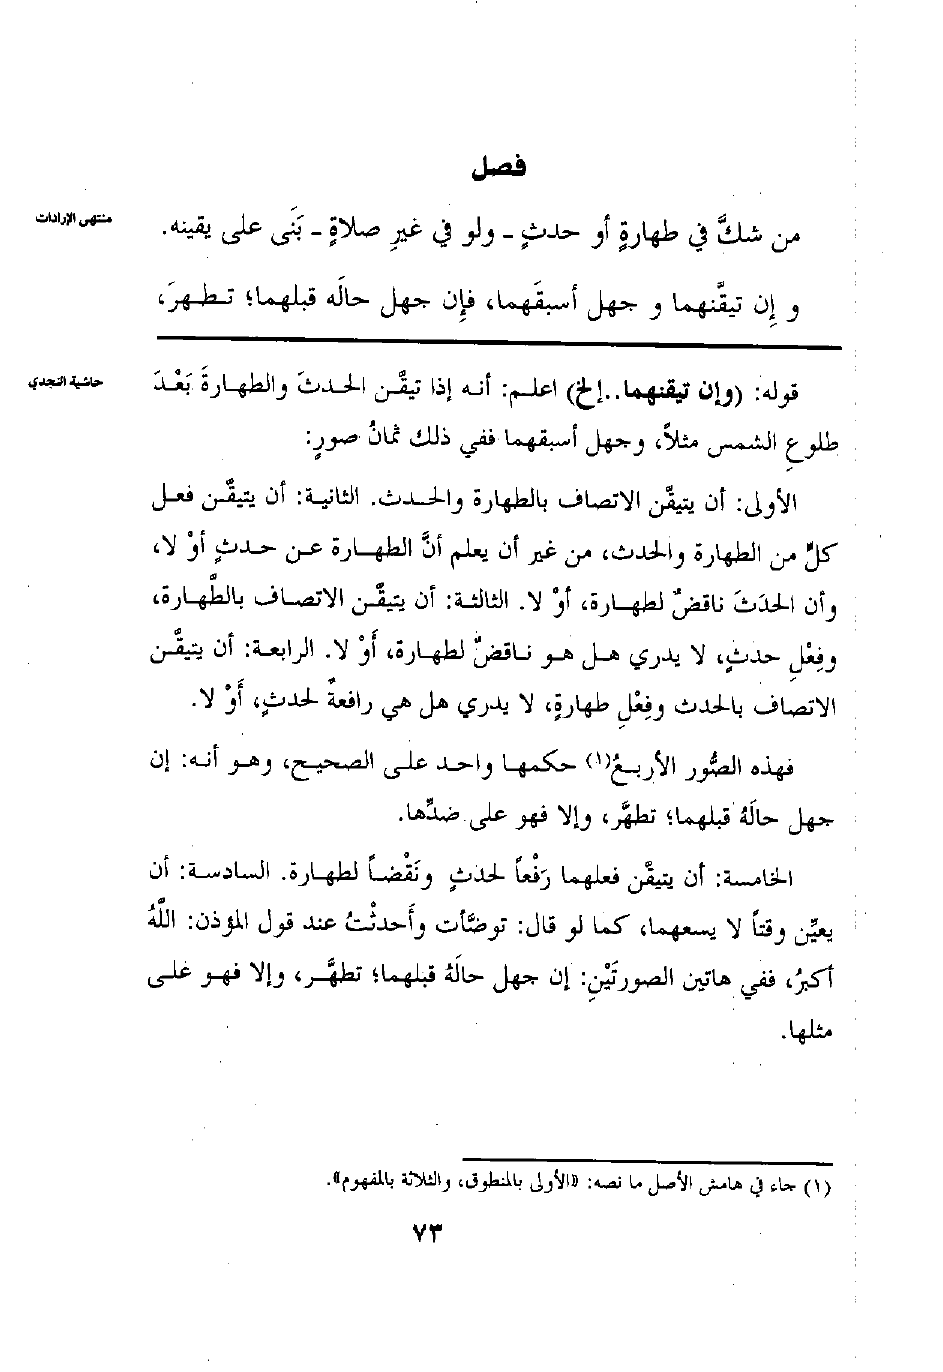 فصل
منتهى الإرادات
من شكَّ في طهارةٍ أو حدثٍ ـ ولو في غيرِ صلاةٍ ـ بَنَى على يقينه.
و إن تيقَّنهما و جهل أسبقَهما، فإن جهل حالَه قبلهما؛ تطهرَ،
حاشية النجدي
قوله: (وإن تيقنهما..إلخ) اعلم: أنه إذا تيقَّن الحدثَ والطهارةَ بَعْدَ
طلوعِ الشمس مثلاً، وجهل أسبقهما ففي ذلك ثمانُ صورٍ:
الأولى: أن يتيقَّن الاتصاف بالطهارة والحدث. الثانية: أن يتيقَّن فعل
كلٍّ من الطهارة والحدث، من غير أن يعلم أنَّ الطهارة عن حدثٍ أوْ لا،
وأن الحدَثَ ناقضٌ لطهارة، أوْ لا. الثالثة: أن يتيقَّن الاتصاف بالطَّهارة،
وفِعْلِ حدثٍ، لا يدري هل هو ناقضٌ لطهارة، أَوْ لا. الرابعة: أن يتيقَّن
الاتصاف بالحدث وفِعْلِ طهارةٍ، لا يدري هل هي رافعةٌ لحدثٍ، أَوْ لا.
فهذه الصُّور الأربعُ(١) حكمها واحد على الصحيح، وهو أنه: إن
جهل حالَهُ قبلهما؛ تطهَّر، وإلا فهو على ضدِّها.
الخامسة: أن يتيقَّن فعلهما رَفْعاً لحدثٍ ونَقْضاً لطهارة. السادسة: أن
يعيِّن وقتاً لا يسعهما، كما لو قال: توضَّأت وأَحدثْتُ عند قول المؤذن: اللَّهُ
أكبرُ، ففي هاتين الصورتَيْنِ: إن جهل حالَهُ قبلهما؛ تطهَّر، وإلا فهو على
مثلها.
(١) جاء في هامش الأصل ما نصه: «الأولى بالمنطوق، والثلاثة بالمفهوم».
٧٣